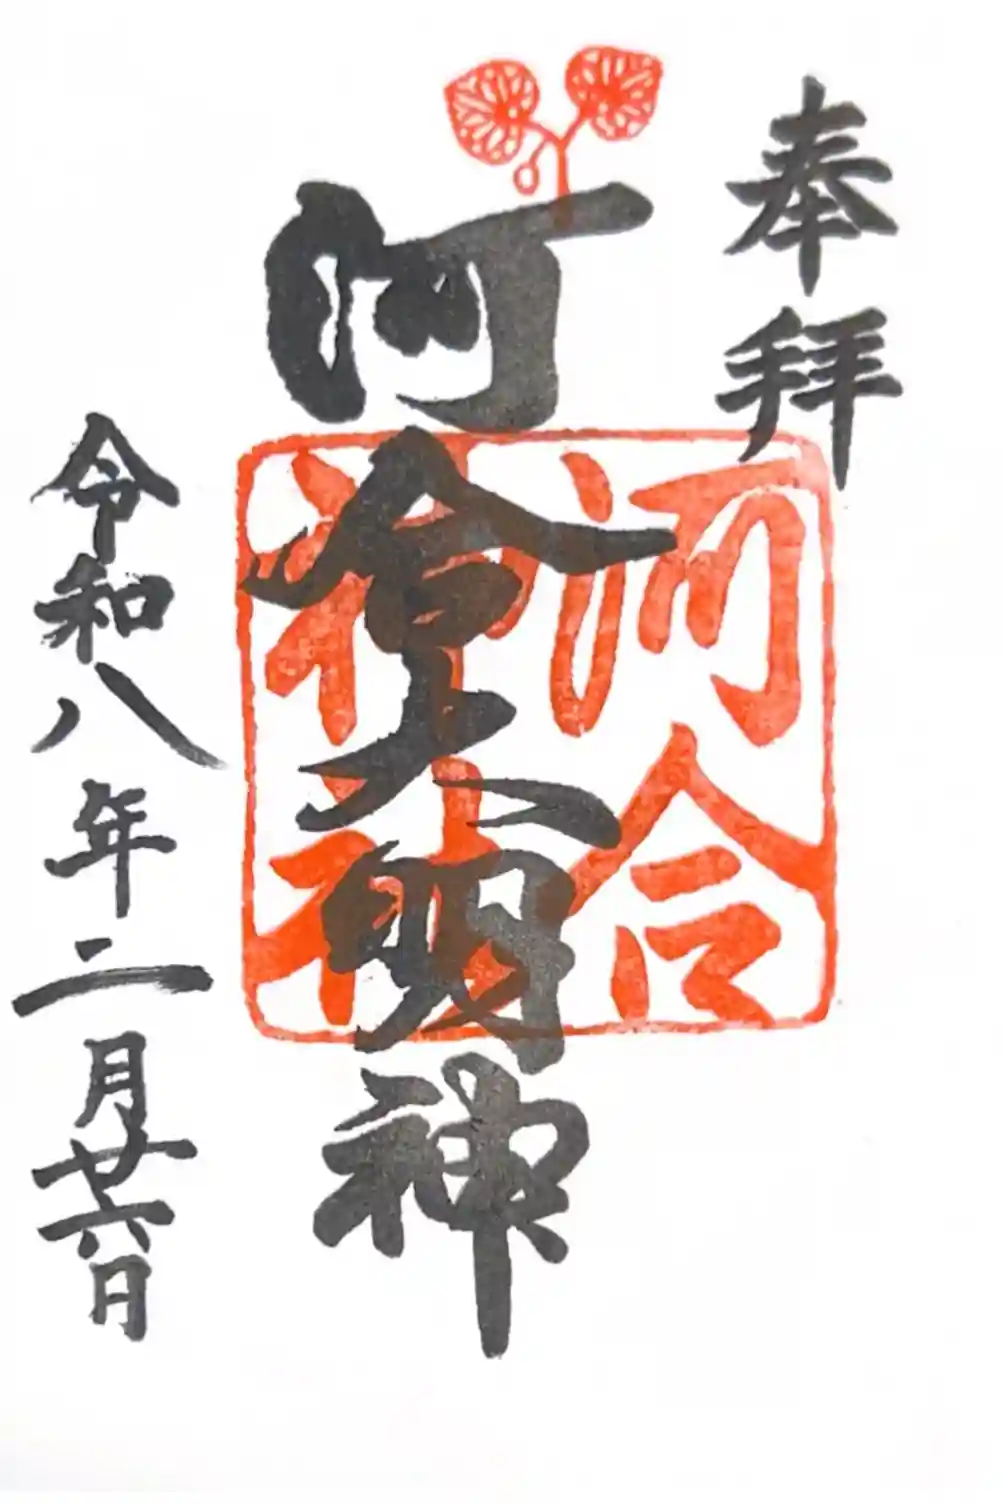 奉拝
河合
神社
河合大明神
令和八年二月廿六日